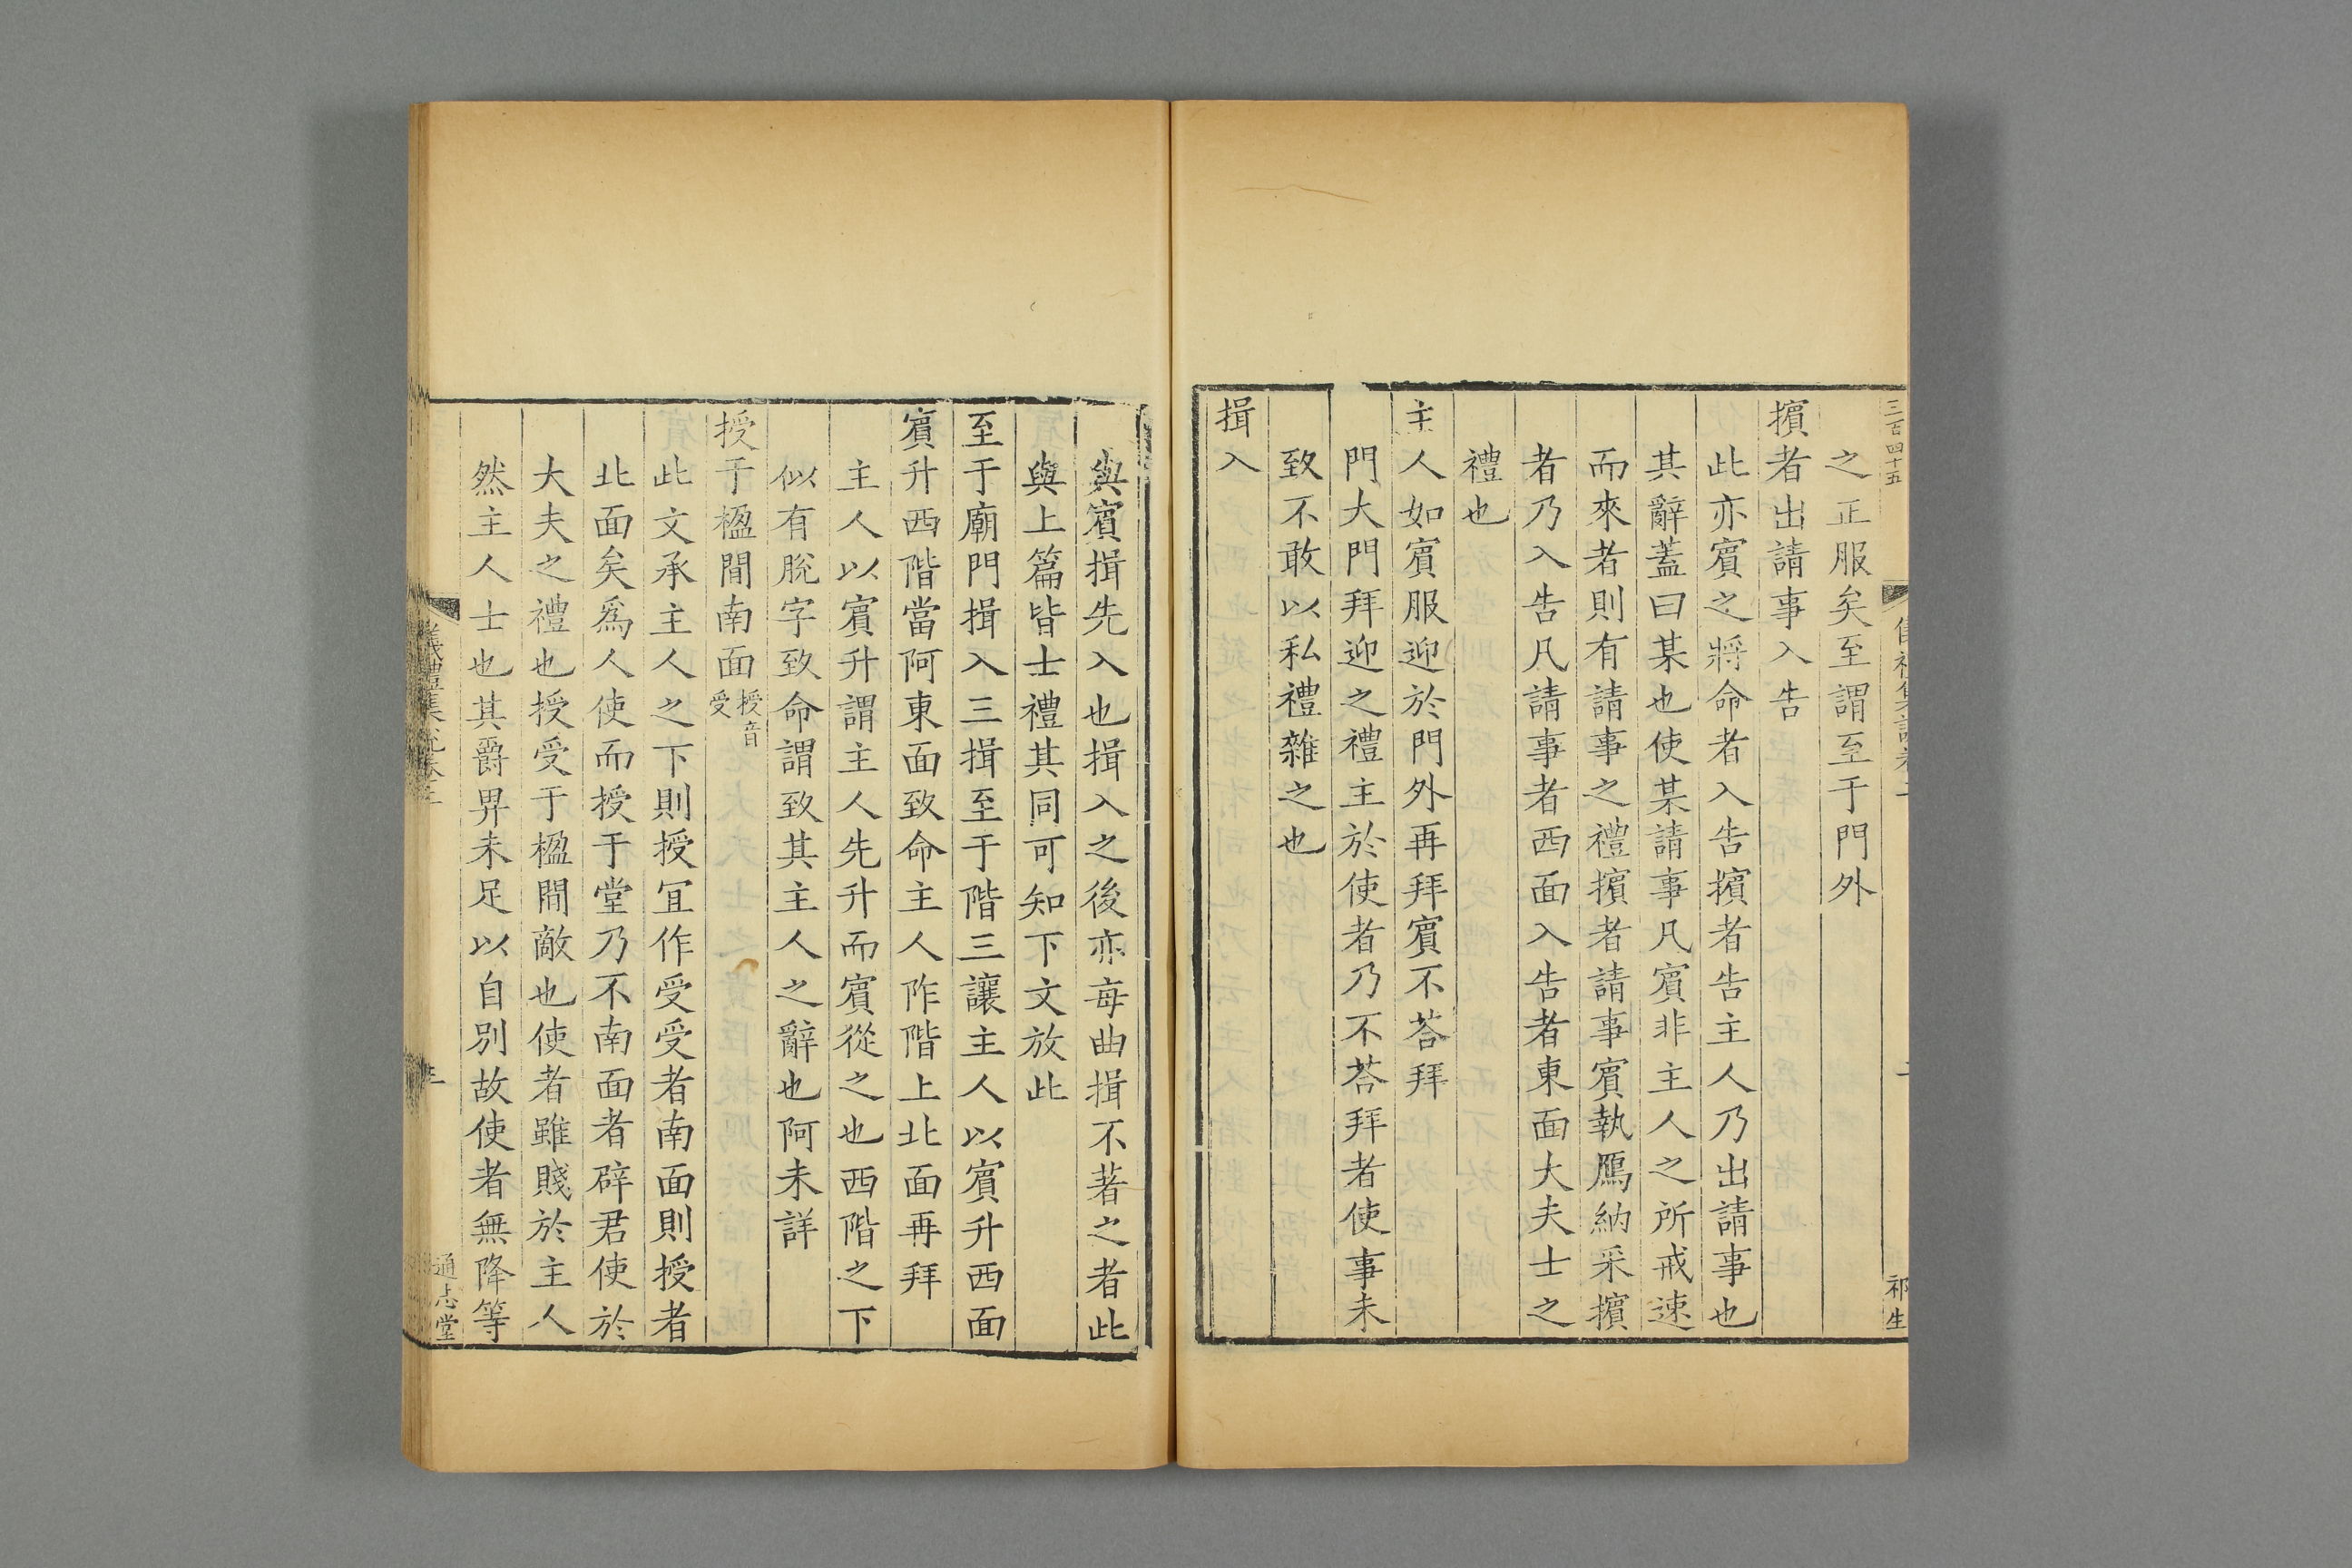 三百四十五
祁生
之正服矣至謂至于門外
擯者出請事入告
此亦賔之將命者入告擯者告主人乃出請事也
其辭蓋曰某也使某請事凡賔非主人之所戒速
而來者則有請事之禮擯者請事賔執鴈納采擯
者乃入告凡請事者西面入告者東面大夫士之
禮也
主人如賔服迎於門外再拜賔不荅拜
門大門拜迎之禮主於使者乃不荅拜者使事未
致不敢以私禮雜之也
揖入
與賔揖先入也揖入之後亦每曲揖不著之者此
與上篇皆士禮其同可知下文放此
至于廟門揖入三揖至于階三讓主人以賔升西面
賔升西階當阿東面致命主人阼階上北面再拜
主人以賔升謂主人先升而賔從之也西階之下
似有脫字致命謂致其主人之辭也阿未詳
授于楹間南面授音受
此文承主人之下則授宜作受受者南面則授者
北面矣爲人使而授于堂乃不南面者辟君使於
大夫之禮也授受于楹間敵也使者雖賤於主人
然主人士也其爵畀未足以自別故使者無降等
儀禮集說卷二
三
通志堂